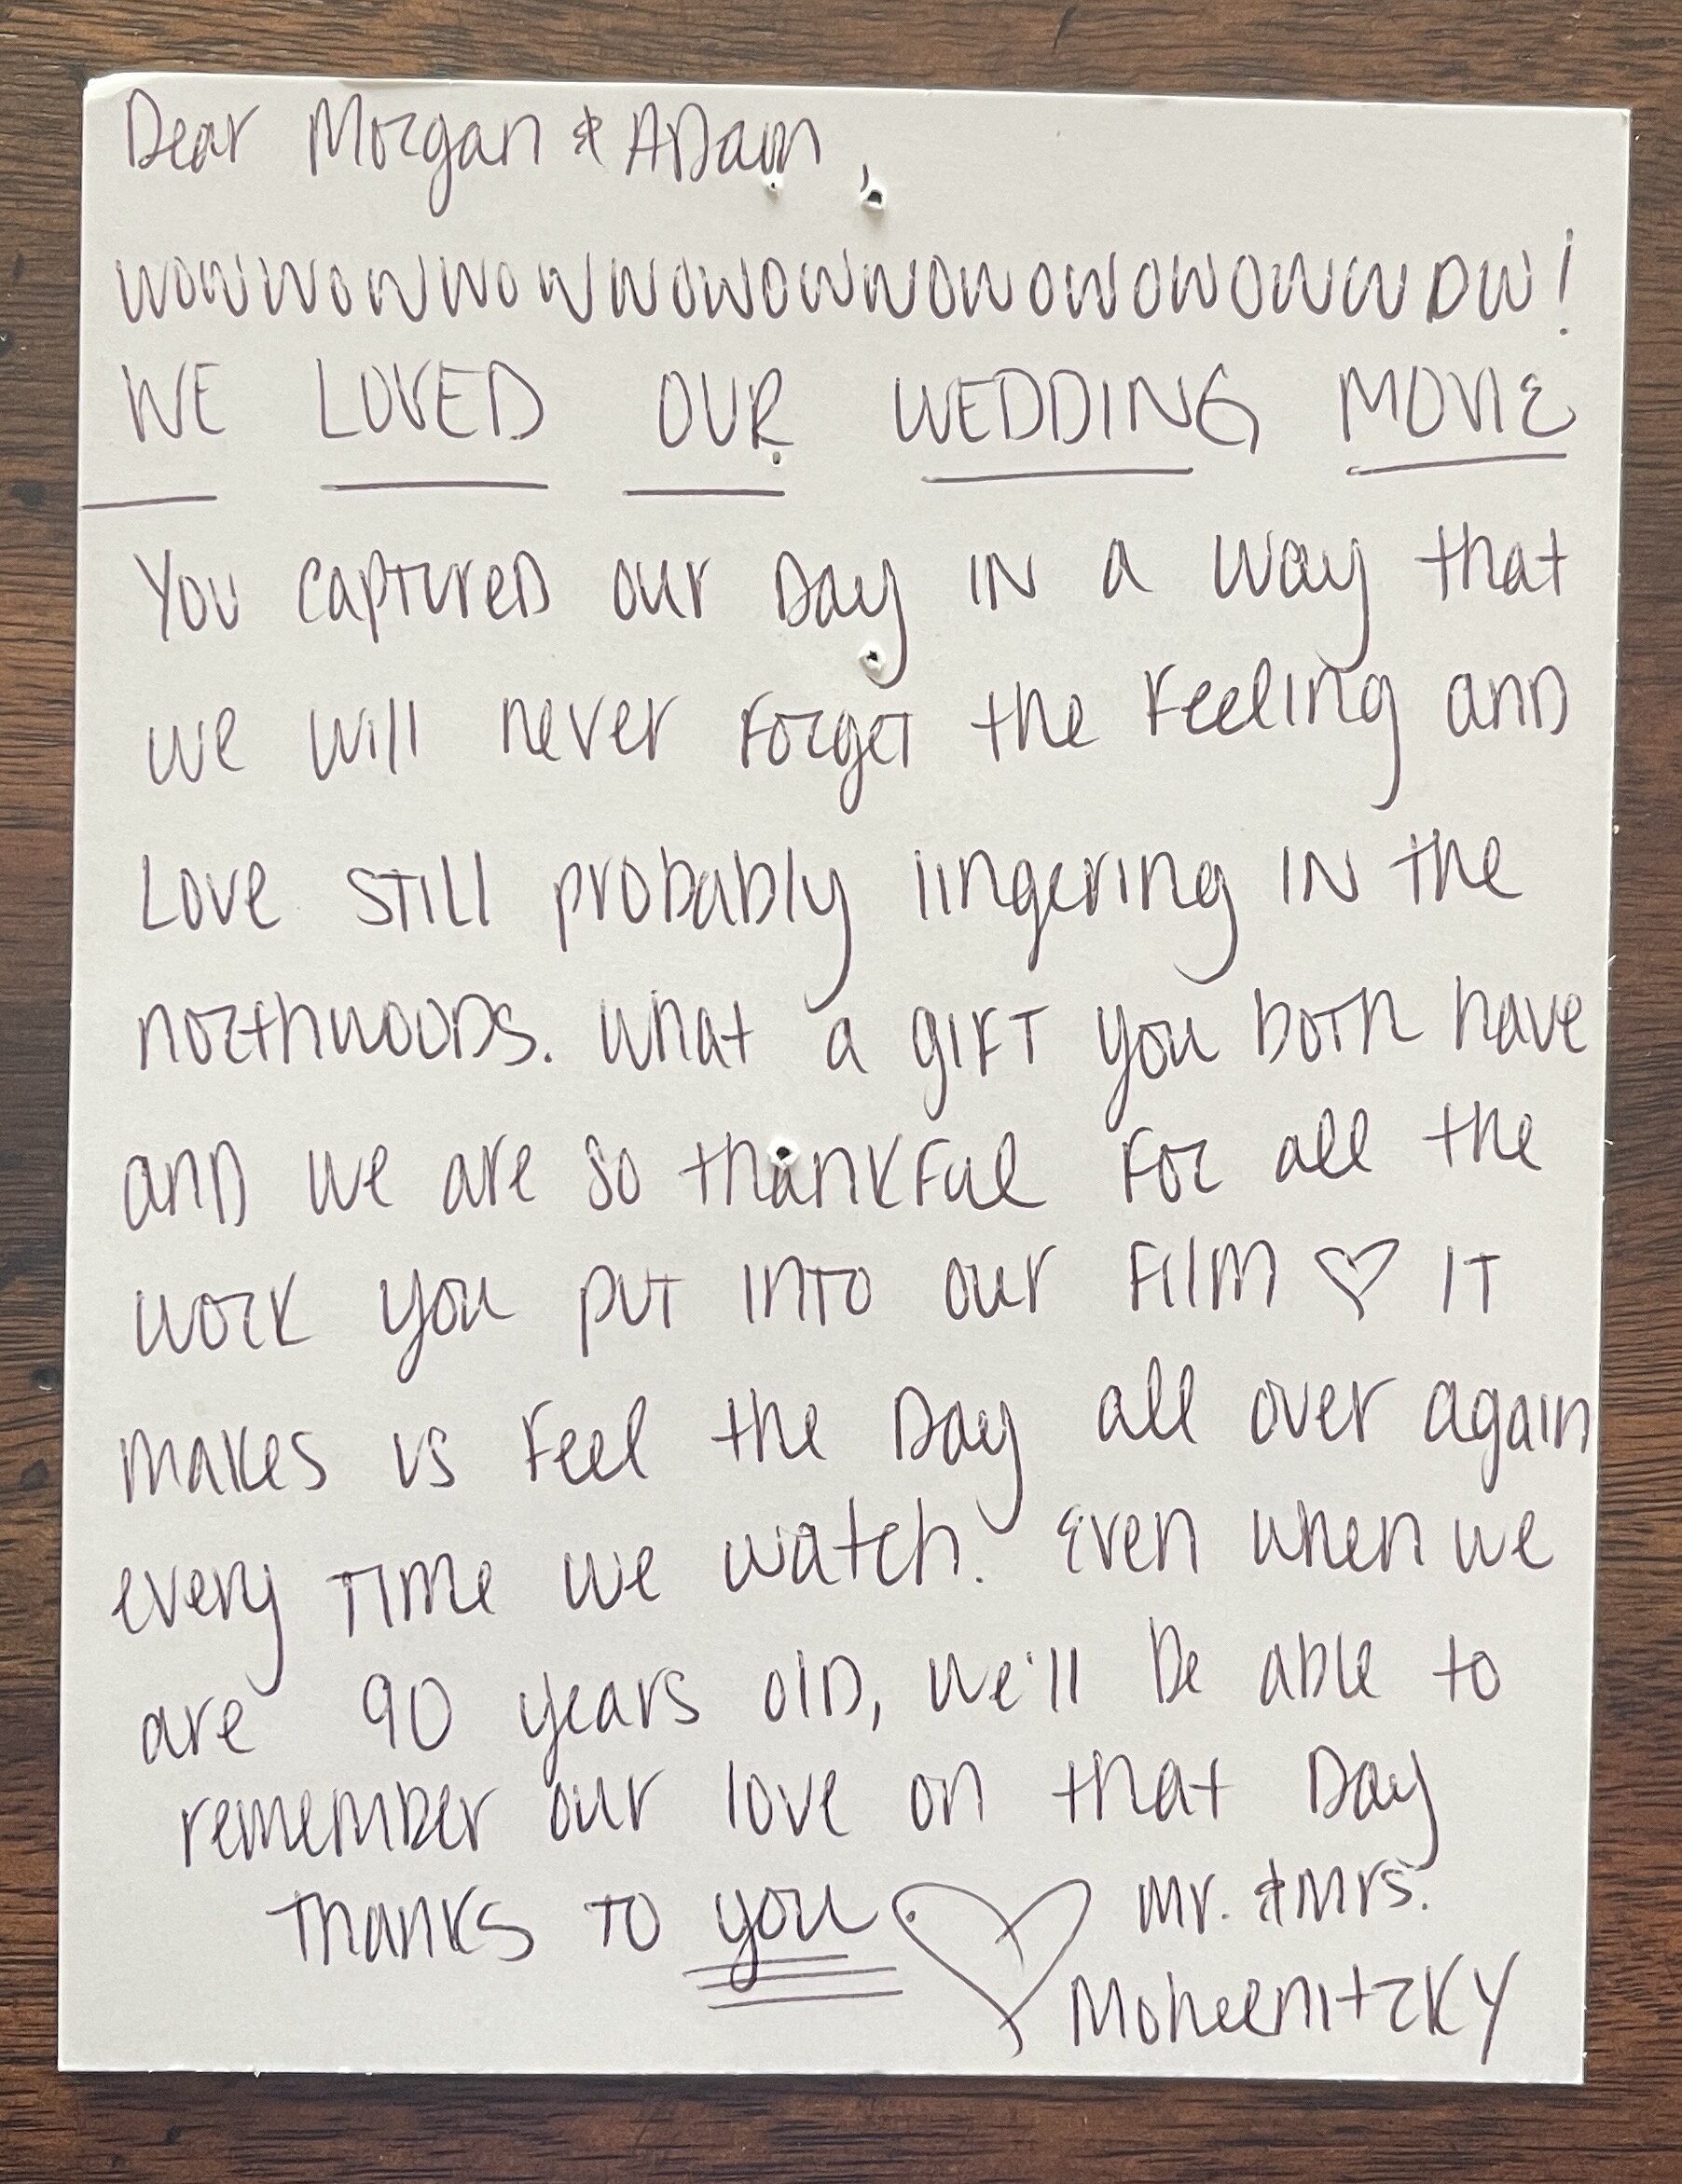 Dear Morgan & Adam,
WOWWOWWOWWOWOWWOWOWOWOWOWWOW!
WE LOVED OUR WEDDING MOVIE
You captured our day in a way that
we will never forget the feeling and
Love still probably lingering in the
northwoods. What a gift you both have
and we are so thankful for all the
work you put into our film ♡ It
makes us feel the day all over again
every time we watch. Even when we
are 90 years old, we'll be able to
remember our love on that day
Thanks to you ♡ Mr. & Mrs.